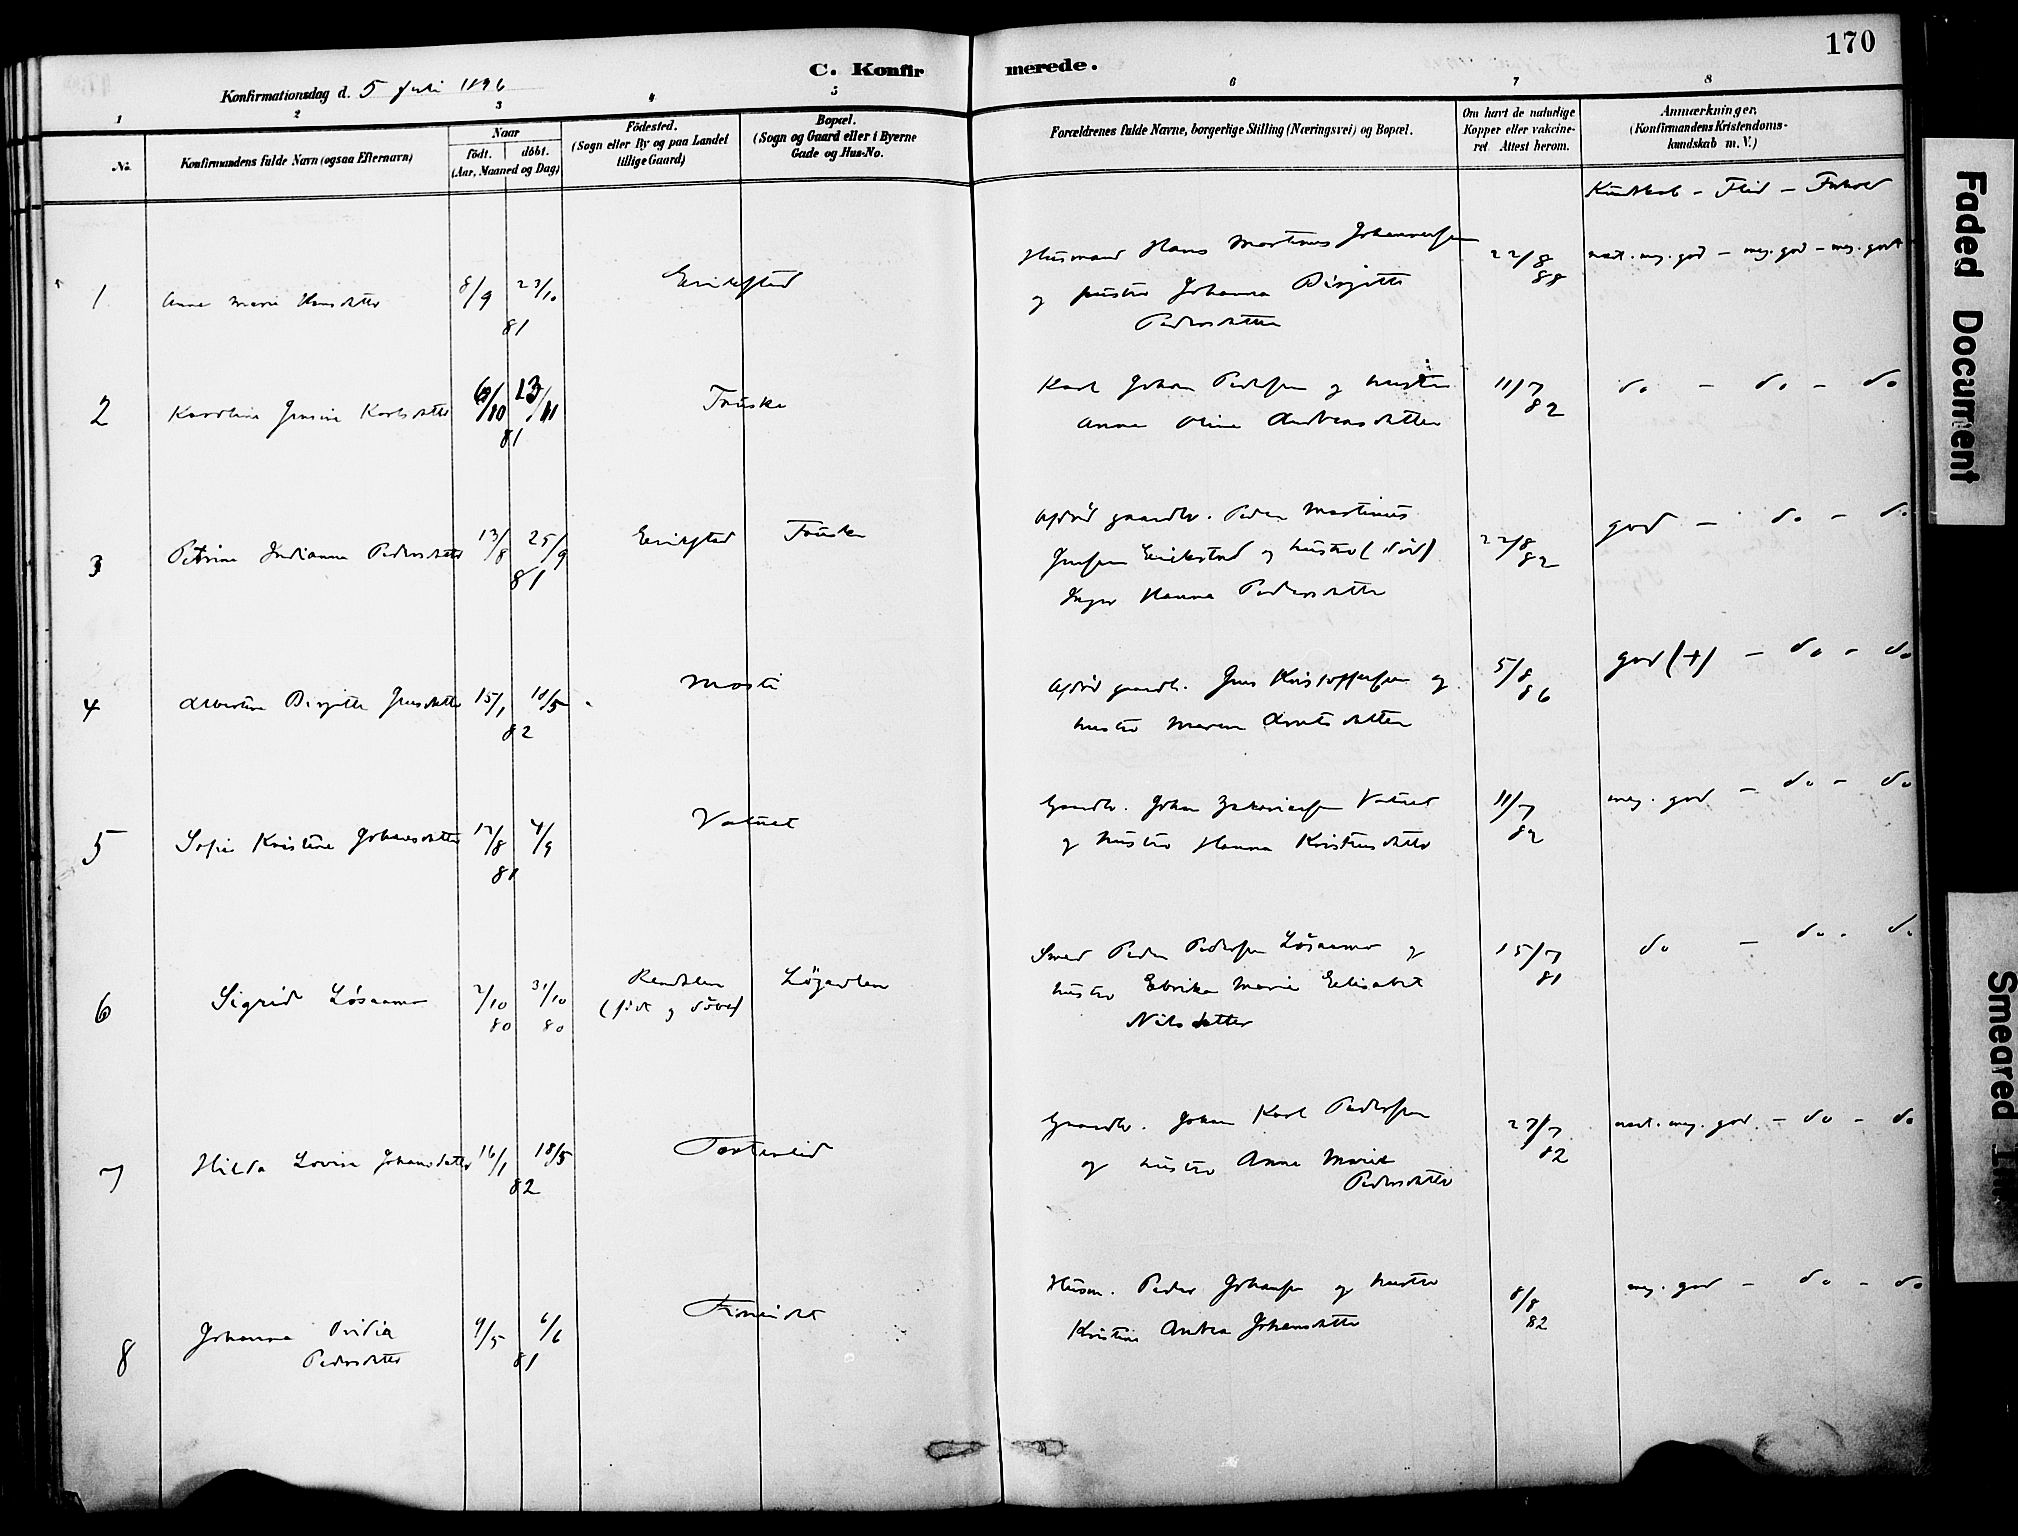 170
C. Konfirmerede.
Konfirmationsdag d. 5 Juli 1896
1 2 3 4 5 6 7 8
No.
Konfirmandens fulde Navn (ogsaa Efternavn)
Naar
födt. döbt.
(Aar, Maaned og Dag)
Födested.
(Sogn eller By og paa Landet
tillige Gaard)
Bopæl.
(Sogn og Gaard eller i Byerne
Gade og Hus-No.
Forældrenes fulde Navne, borgerlige Stilling (Næringsvei) og Bopæl.
Om havt de naturlige
Kopper eller vakcine-
ret Attest herom.
Anmærkninger,
(Konfirmandens Kristendoms-
kundskab m. V.)
Kundskab - Flid - Forhold
1 Anna Marie Hansdatter 8/9 23/10 81 Erikstad
Husmand Hans Martinus Johannessen
og hustru Johanna Birgitte
Pedersdatter
22/8 88
næst. meg. god - meg. god - meg. godt
2 Karoline Jensine Karlsdatter 6/10 13/11 81 Fauske
Karl Johan Pedersen og hustru
Anne Oline Andreasdatter
11/7 82
do - do - do
3 Petrine Indianna Pedersdatter 13/8 25/9 81 Erikstad Fauske
Afdød gaardbr. Peder Martinus
Jensen Erikstad og hustru (død)
Inger Hanna Pedersdatter
22/8 82
god - do - do
4 Albertine Birgitte Jensdatter 15/1 18/5 82
Afdød gaardb. Jens Kristoffersen og
hustru Maren Arntsdatter
5/8 86
god (+) - do - do
5 Sofie Kristine Johansdatter 17/8 4/9 81 Vatnet
Gaardbr. Johan Zakariassen Vatnet
og hustru Hanna Kristensdatter
11/7 82
meg. god - do - do
6 Sigrid Løsaamo 2/10 80 31/10 80
(født og døbt)
Smed Peder Pedersen Løsaamo og
hustru Elrika Marie Elisabet
Nilsdatter
15/7 81
do - do - do
7 Hilda Lovise Johansdatter 16/1 18/5 82
Gaardbr. Johan Karl Pedersen
og hustru Anne Marie
Pedersdatter
27/7 82
næst. meg. god. - do - do
8 Johanna
Pedersdatter
9/5 6/6 81 Finneidet
Husm. Peder Johansen og hustru
Kristine Andrea Johansdatter
8/8 82
meg. god - do - do
Faded Document
Smeared Ink